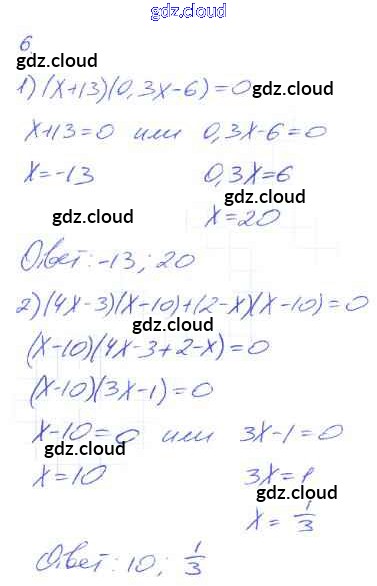 gdz.cloud
gdz.cloud
6
gdz.cloud
1) (x+13)(0,3x-6)=0
gdz.cloud
x+13=0 или 0,3x-6=0
gdz.cloud
x=-13 0,3x=6
gdz.cloud
gdz.cloud x=20
Ответ: -13; 20
gdz.cloud
2) (4x-3)(x-10)+(2-x)(x-10)=0
gdz.cloud
(x-10)(4x-3+2-x)=0
gdz.cloud
(x-10)(3x-1)=0
gdz.cloud
x-10=0 или 3x-1=0
gdz.cloud
x=10 3x=1
gdz.cloud
x=1/3
gdz.cloud
Ответ: 10; 1/3